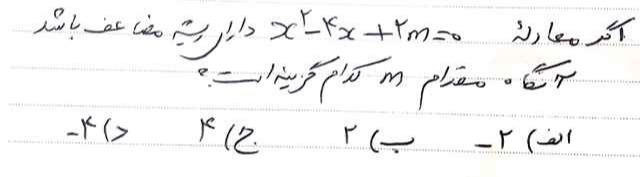 اگر معادلهٔ x² - ۴x + ۲m = ۰ دارای ریشه مضاعف باشد
آنگاه مقدار m کدام گزینه است؟
الف) ۲- ب) ۲ ج) ۴ د) ۴-